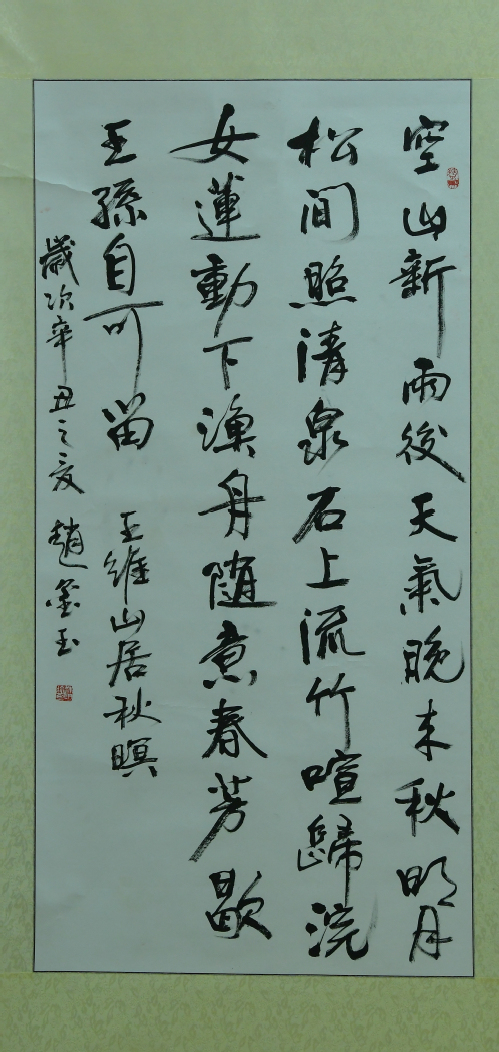 空山新雨後天氣晚来秋明月
松間照清泉石上流竹喧歸浣
女蓮動下漁舟随意春芳歇
王孫自可留 王維山居秋暝
歲次辛丑之夏 趙玉